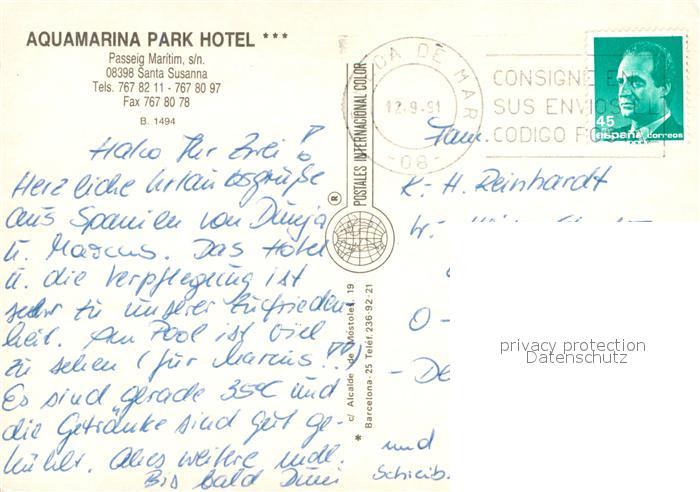 AQUAMARINA PARK HOTEL ***
Passeig Marítim, s/n.
08398 Santa Susanna
Tels. 767 82 11 - 767 80 97
Fax 767 80 78
B. 1494
Hallo Ihr Zwei!
Herzliche Urlaubsgrüße
aus Spanien von Dunja
u. Marcus. Das Hotel
u. die Verpflegung ist
sehr zu unserer Zufrieden-
heit. Am Pool ist viel
zu sehen (für Marcus!!)
Es sind gerade 35°C und
die Getränke sind gut ge-
kühlt. Alles weitere mdl.
Bis bald Duni
und
Schreib.
POSTALES INTERNACIONAL COLOR
®
c/ Alcalde de Móstoles, 19
* Barcelona-25 Teléf. 236-92-21
DA DE MAR
12-9-91
-08-
CONSIGNE EN
SUS ENVIOS EL
CODIGO PO
45
españa correos
Fam.
K.-H. Reinhardt
W.-
O-
- De
privacy protection
Datenschutz